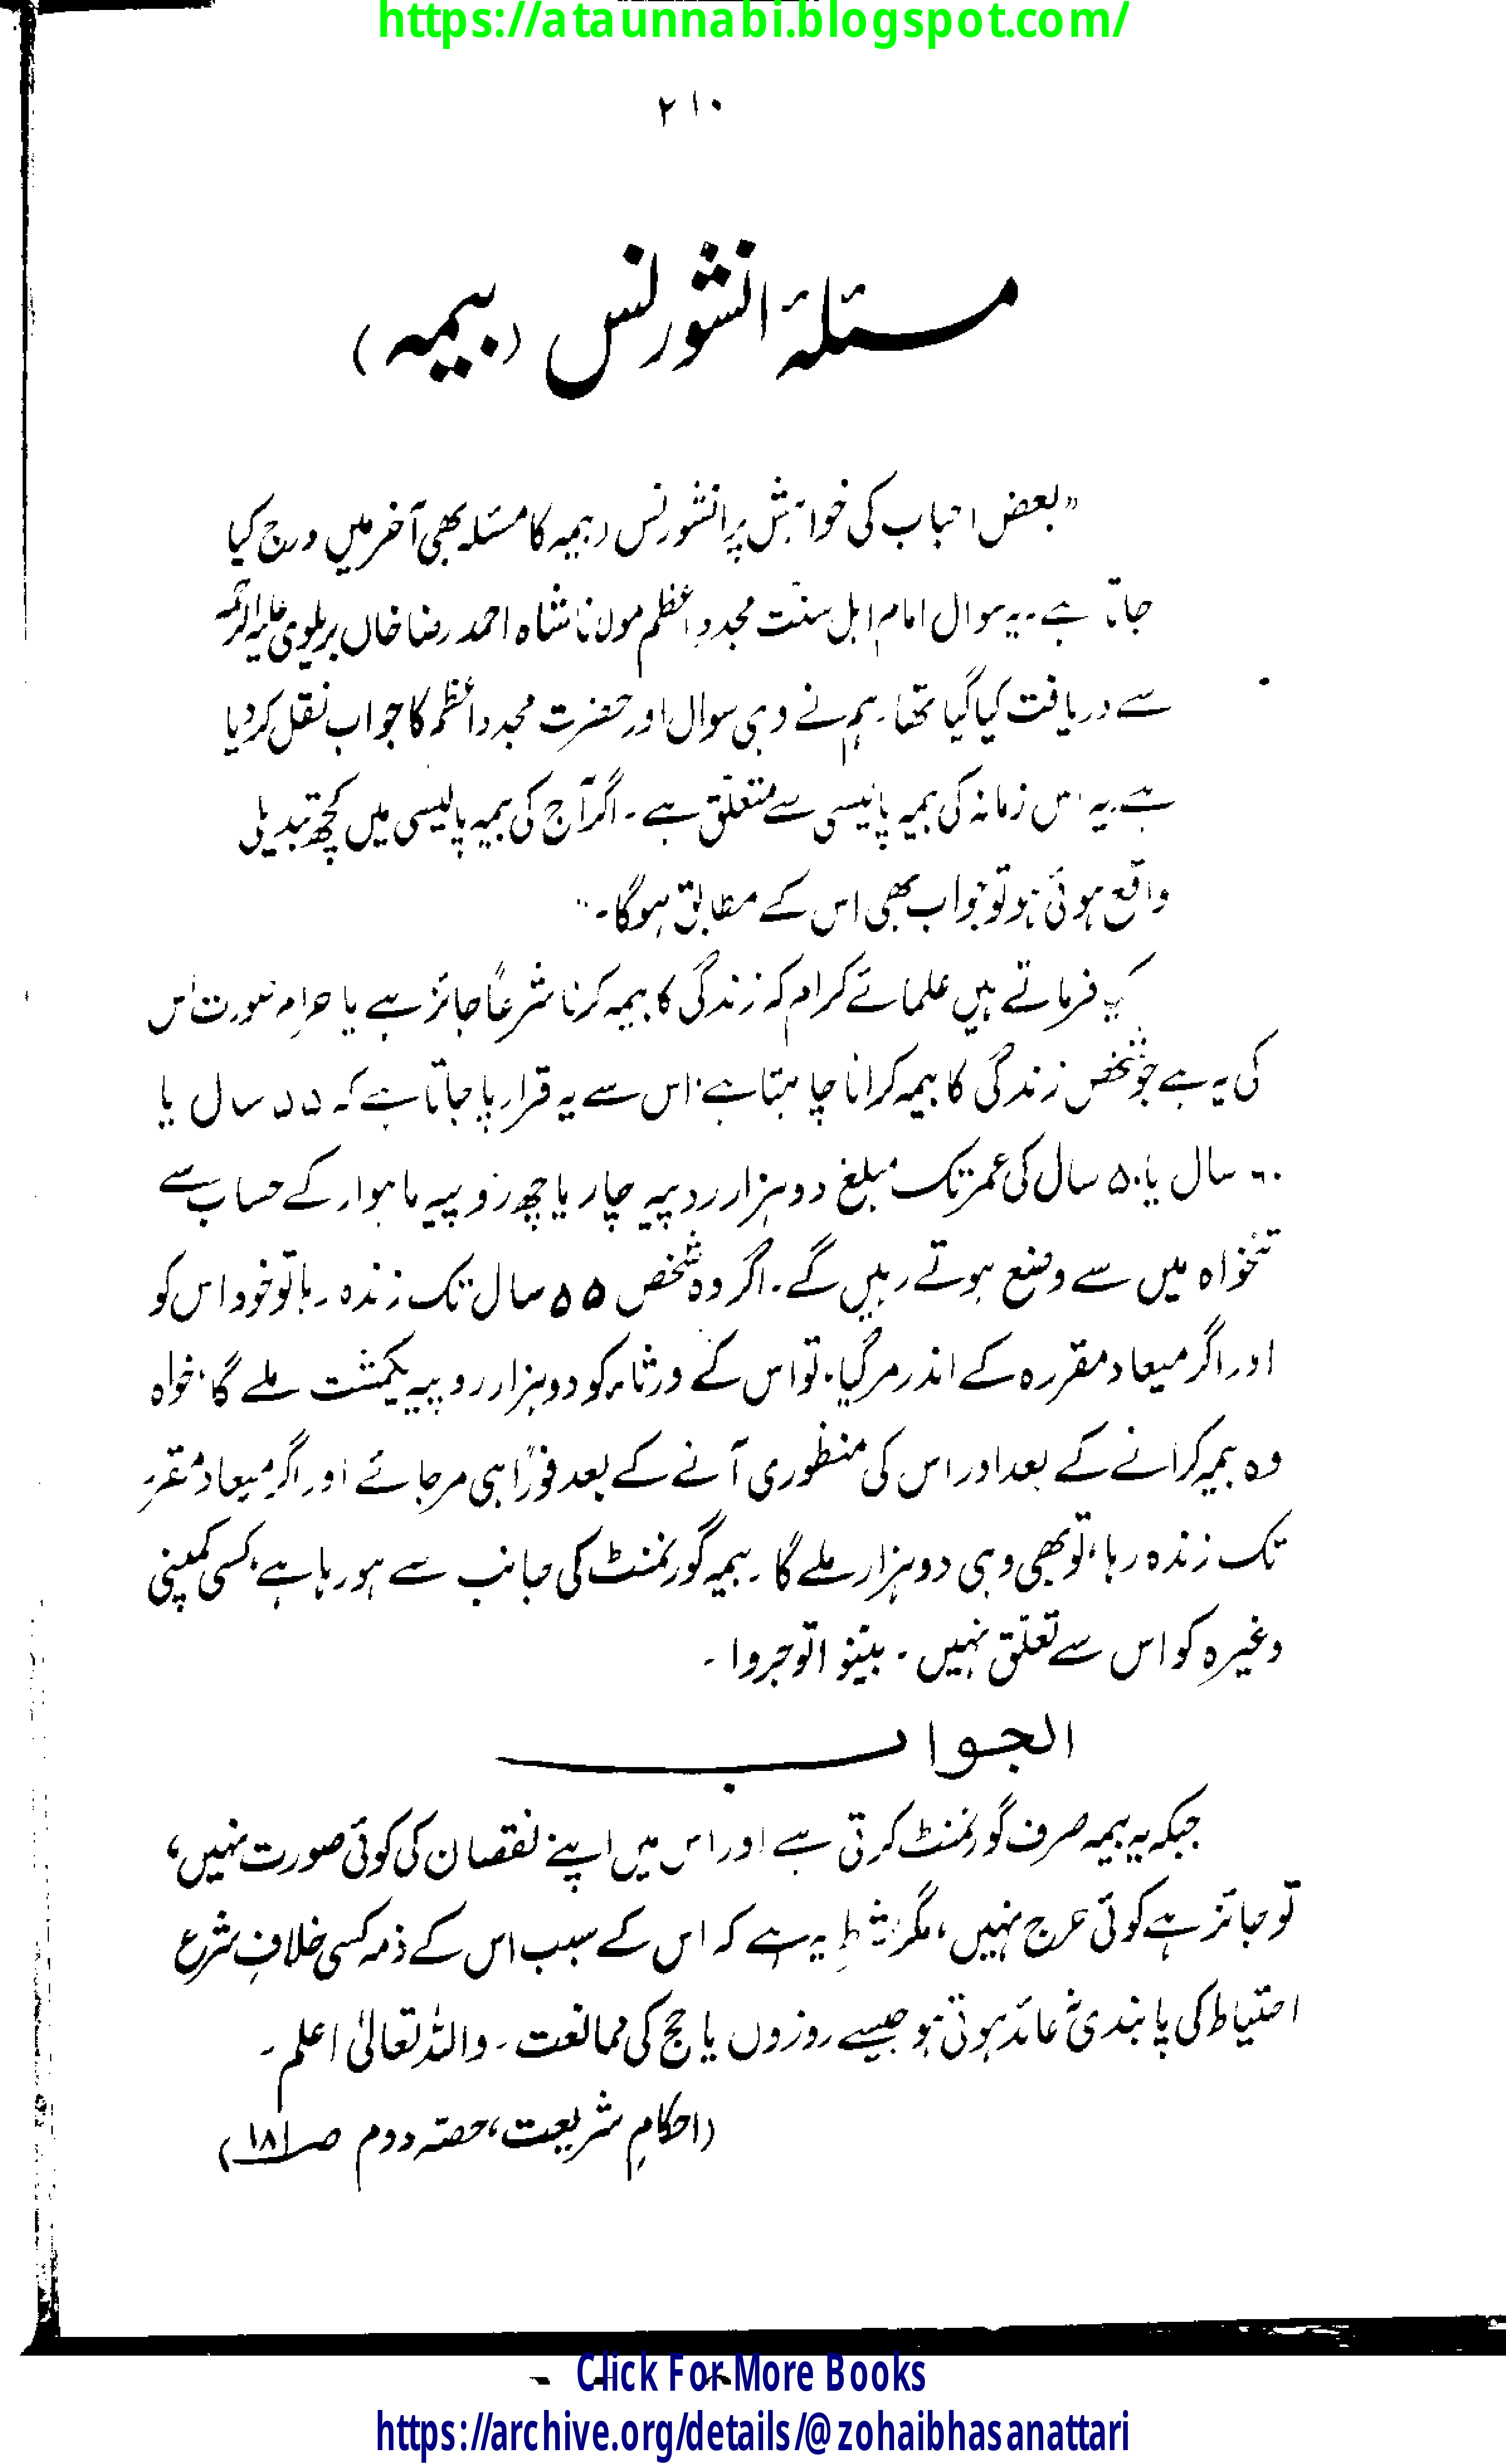 https://ataunnabi.blogspot.com/
۲۱۰
مسئلۂ انشورنس (بیمہ)
”بعض احباب کی خواہش پر انشورنس (بیمہ کا مسئلہ بھی آخر میں درج کیا
جاتا ہے۔ یہ سوال امام اہل سنّت مجددِ اعظم مولانا شاہ احمد رضا خاں بریلوی علیہ الرحمہ
سے دریافت کیا گیا تھا۔ ہم نے وہی سوال اور حضرت مجدد اعظم کا جواب نقل کر دیا
ہے۔ یہ اس زمانہ کی بیمہ پالیسی سے متعلق ہے۔ اگر آج کی بیمہ پالیسی میں کچھ تبدیلی
واقع ہوئی ہو تو جواب بھی اس کے مطابق ہوگا۔“
کیا فرماتے ہیں علمائے کرام کہ زندگی کا بیمہ کرنا شرعاً جائز ہے یا حرام صورت اس
کی یہ ہے جو شخص زندگی کا بیمہ کرانا چاہتا ہے، اس سے یہ قرار پا جاتا ہے کہ ۵۵ سال یا
۶۰ سال یا ۵۰ سال کی عمر تک مبلغ دو ہزار روپیہ چار یا چھ روپیہ ماہوار کے حساب سے
تنخواہ میں سے وضع ہوتے رہیں گے۔ اگر وہ شخص ۵۵ سال تک زندہ رہا تو خود اس کو
اور اگر میعاد مقررہ کے اندر مر گیا، تو اس کے ورثاء کو دو ہزار روپیہ یکمشت ملے گا، خواہ
وہ بیمہ کرانے کے بعد اور اس کی منظوری آنے کے بعد فوراً ہی مر جائے اور اگر میعاد مقررہ
تک زندہ رہا، تو بھی وہی دو ہزار ملے گا۔ بیمہ گورنمنٹ کی جانب سے ہو رہا ہے، کسی کمپنی
وغیرہ کو اس سے تعلق نہیں۔ بیّنوا توجروا۔
الجواب
جبکہ یہ بیمہ صرف گورنمنٹ کرتی ہے اور اس میں اپنے نقصان کی کوئی صورت نہیں،
تو جائز ہے کوئی حرج نہیں، مگر شرط یہ ہے کہ اس کے سبب اس کے ذمہ کسی خلافِ شرع
احتیاط کی پابندی نہ عائد ہوتی ہو جیسے روزوں یا حج کی ممانعت۔ واللہ تعالیٰ اعلم۔
(احکامِ شریعت، حصّہ دوم صـ۱۸۱)
Click For More Books
https://archive.org/details/@zohaibhasanattari